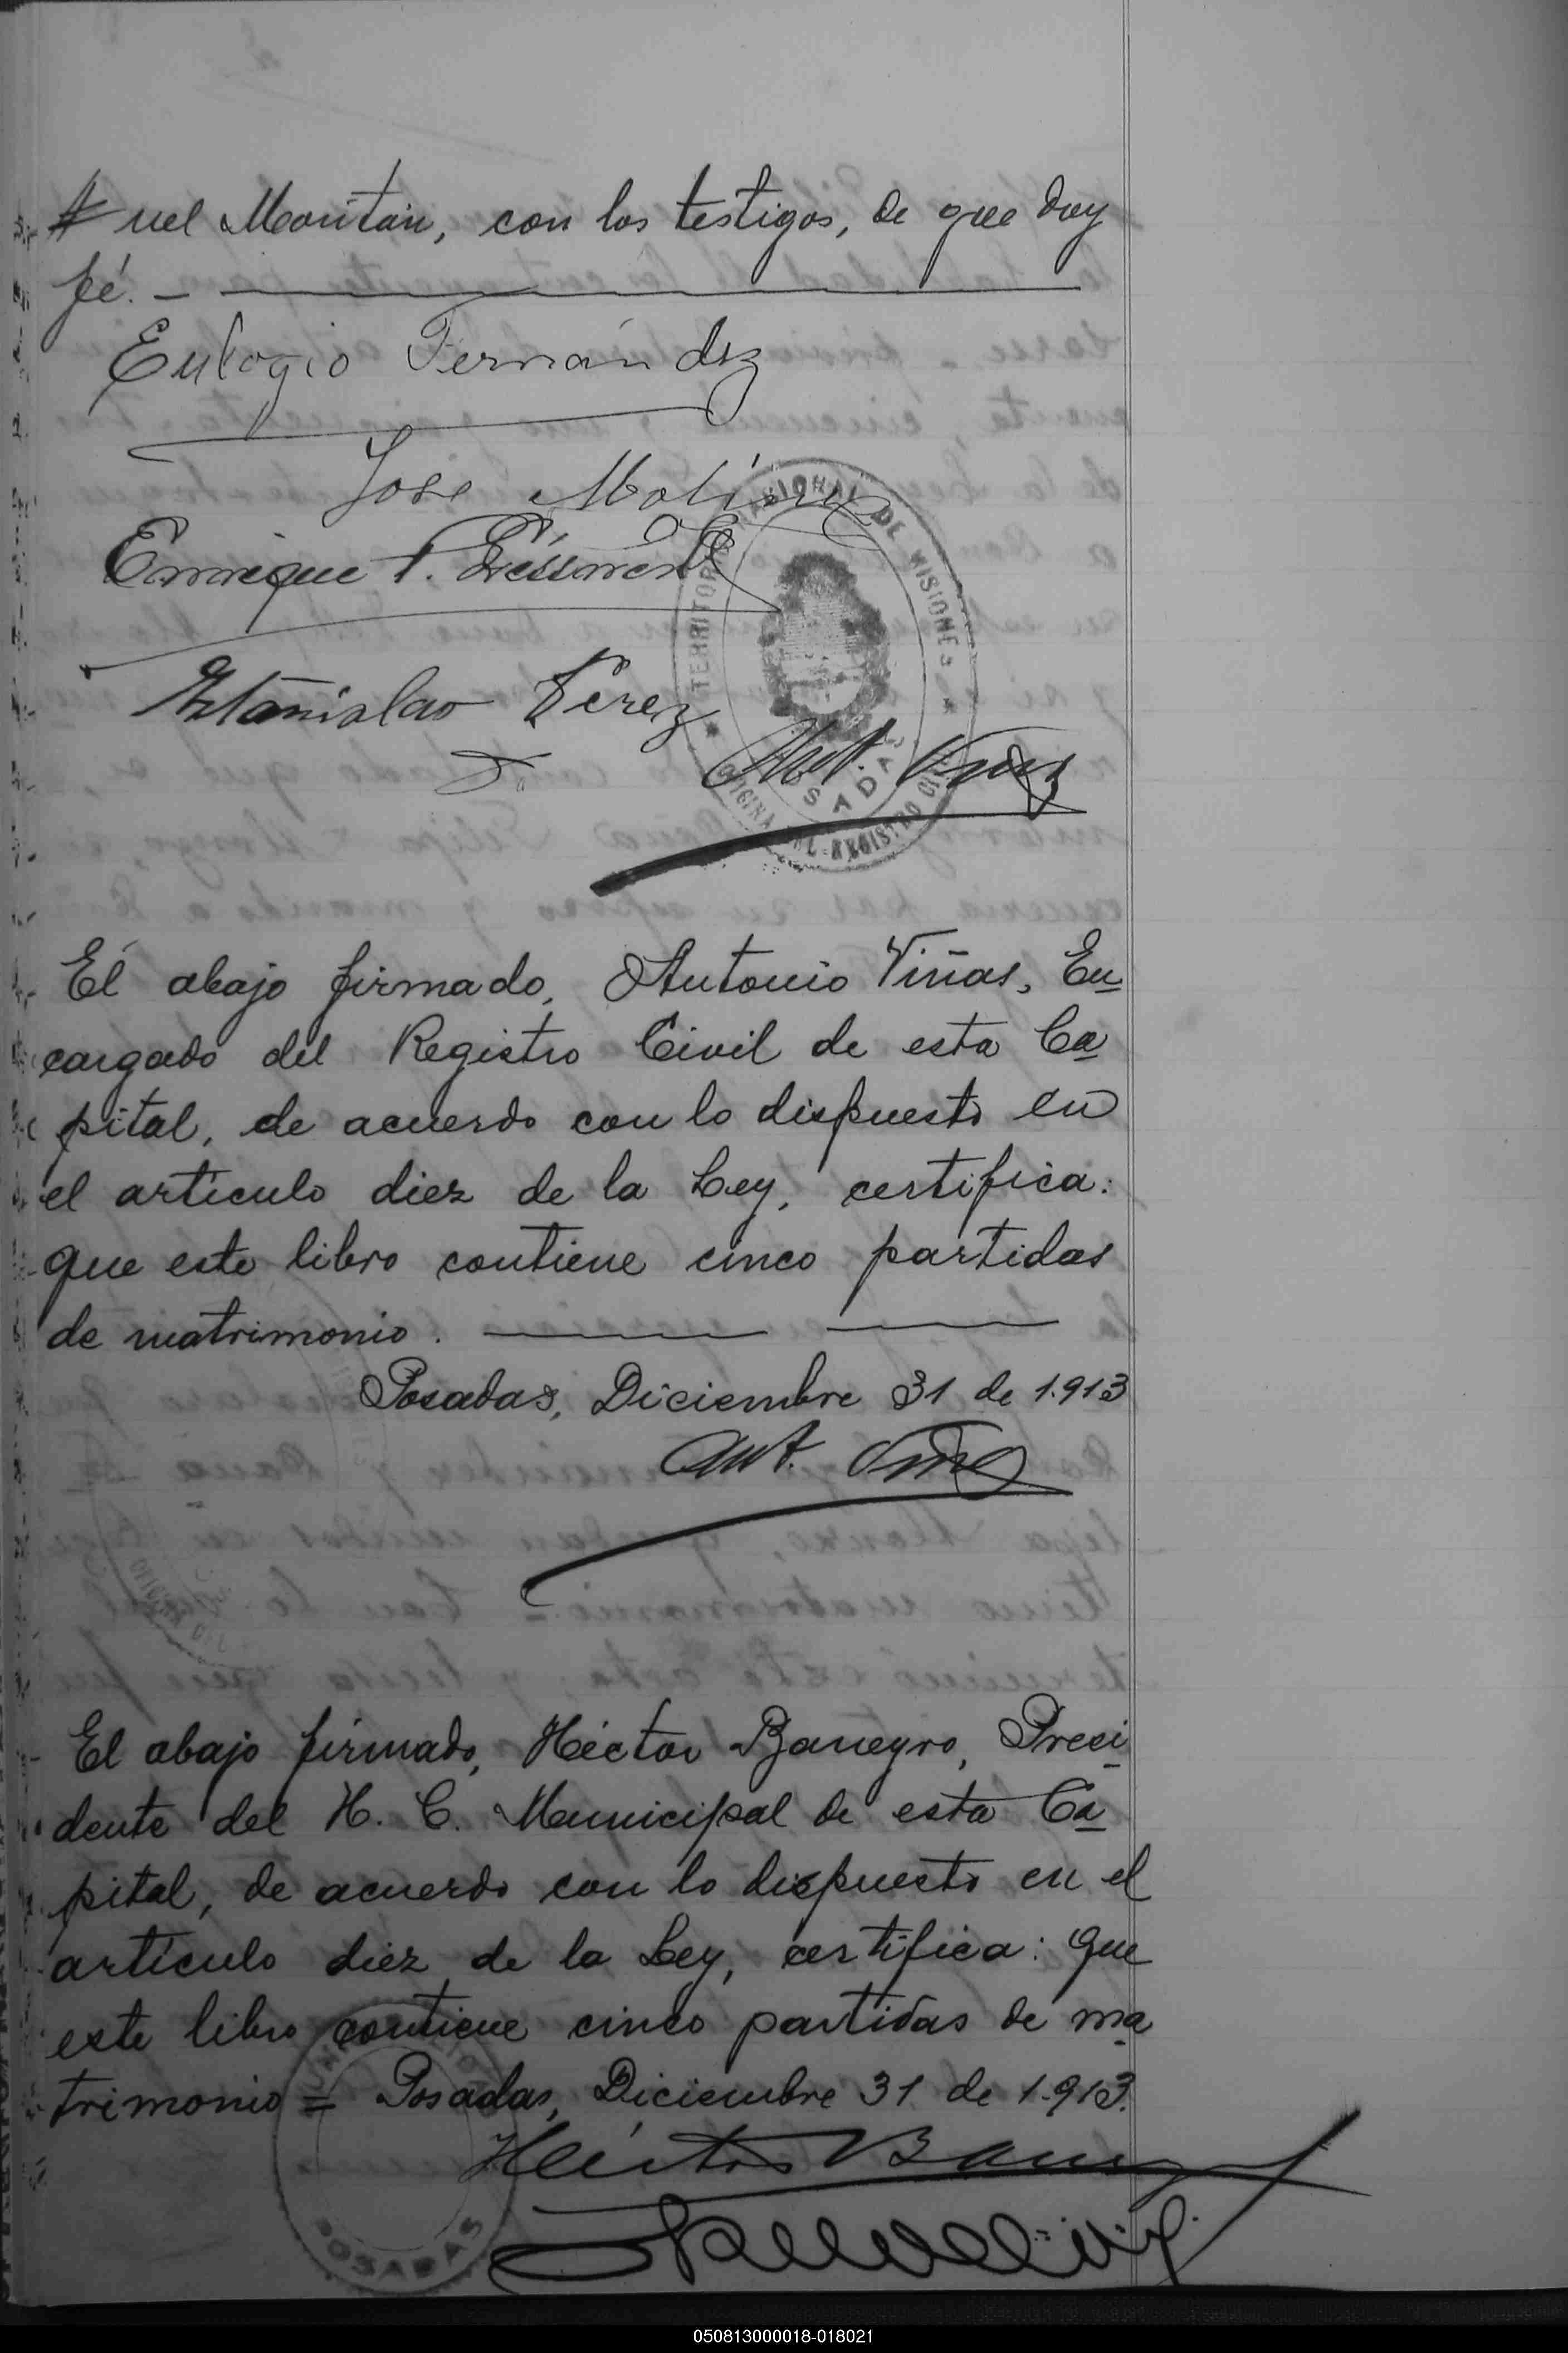 nuel Montán, con los testigos, de que doy
fé. —
Eulogio Fernández
José Molina
Enrique P.
Estanislao Perez
Ant. Viñas
TERRITORIO NACIONAL DE MISIONES
OFICINA DEL REGISTRO CIVIL
POSADAS
El abajo firmado, Antonio Viñas, En
cargado del Registro Civil de esta Ca
pital, de acuerdo con lo dispuesto en
el artículo diez de la Ley, certifica:
que este libro contiene cinco partidas
de matrimonio. —
Posadas, Diciembre 31 de 1.913
Ant. Viñas
El abajo firmado, Héctor Baneyro, Presi
dente del H. C. Municipal de esta Ca
pital, de acuerdo con lo dispuesto en el
artículo diez de la Ley, certifica: que
este libro contiene cinco partidas de ma
trimonio = Posadas, Diciembre 31 de 1.913.
Héctor
POSADAS
050813000018-018021